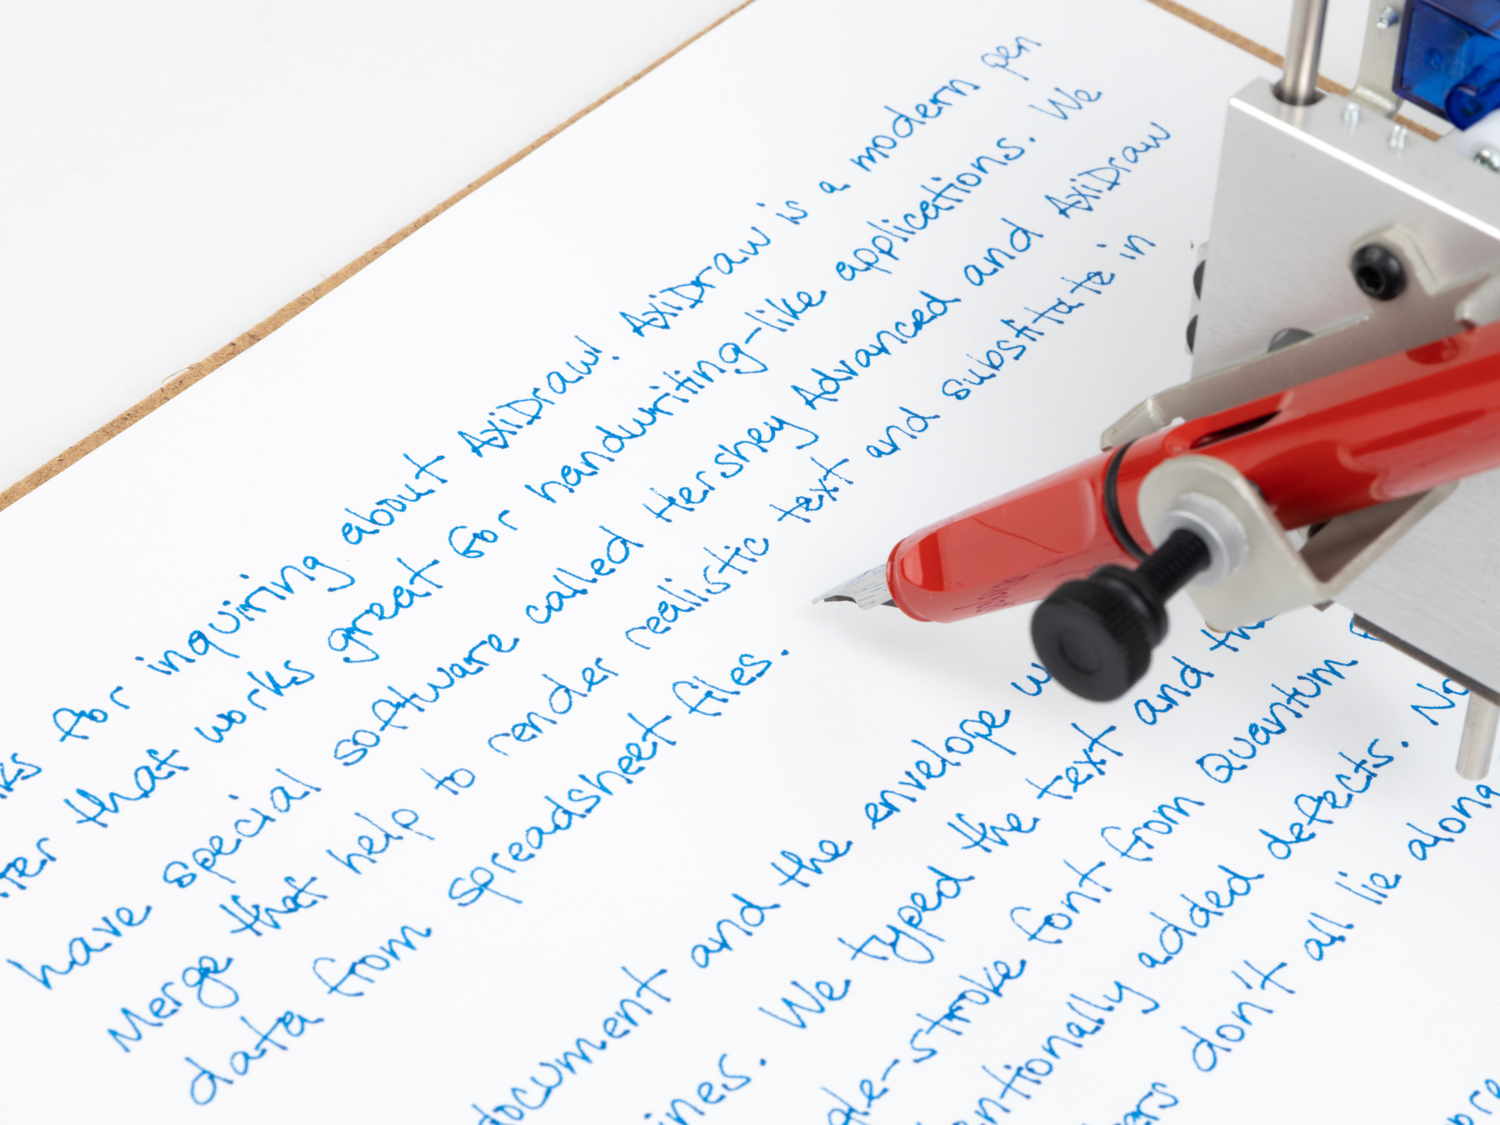 for inquiring about AxiDraw! AxiDraw is a modern pen
that works great for handwriting-like applications. We
have special software called Hershey Advanced and AxiDraw
Merge that help to render realistic text and substitute in
data from spreadsheet files.
document and the envelope
We typed the text and
font from Quantum
added defects.
don't all lie along